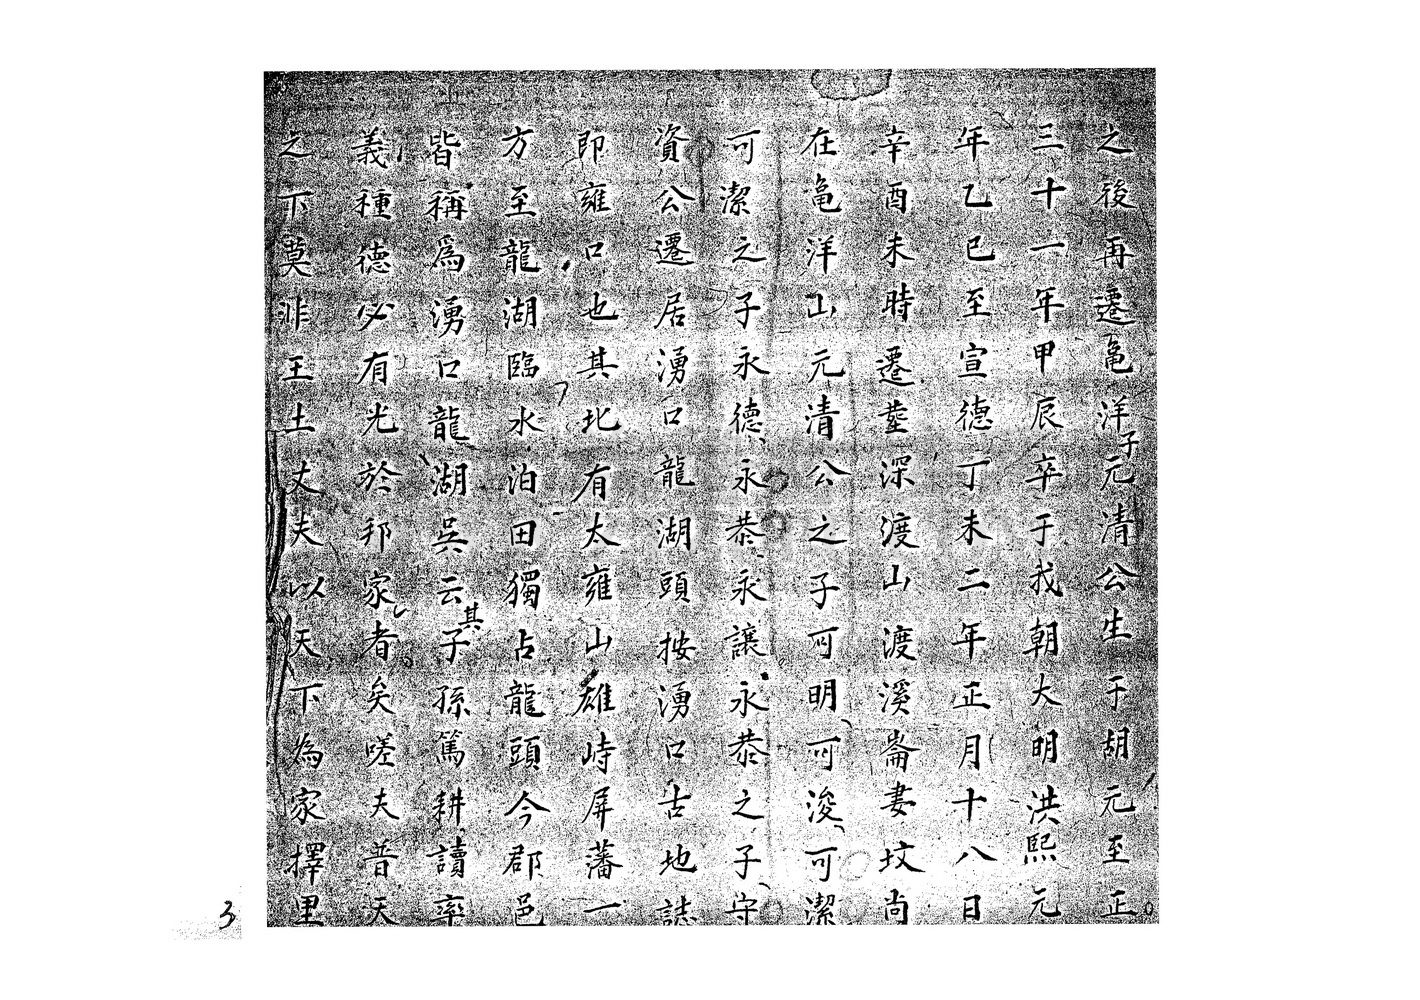 之後再遷亀洋子元清公生于胡元至正
三十一年甲辰卒于我朝大明洪熙元
年乙巳至宣德丁未二年正月十八日
辛酉未時遷塟深渡山渡溪崙妻坟尚
在亀洋山元清公之子可明可浚可潔
可潔之子永德永恭永讓永恭之子守
資公遷居湧口龍湖頭按湧口古地誌
即雍口也其北有太雍山雄峙屏藩一
方至龍湖臨水泊田獨占龍頭今郡邑
皆稱爲湧口龍湖吳云其子孫篤耕讀率
義種德必有光於邦家者矣嗟夫普天
之下莫非王土丈夫以天下為家擇里
3